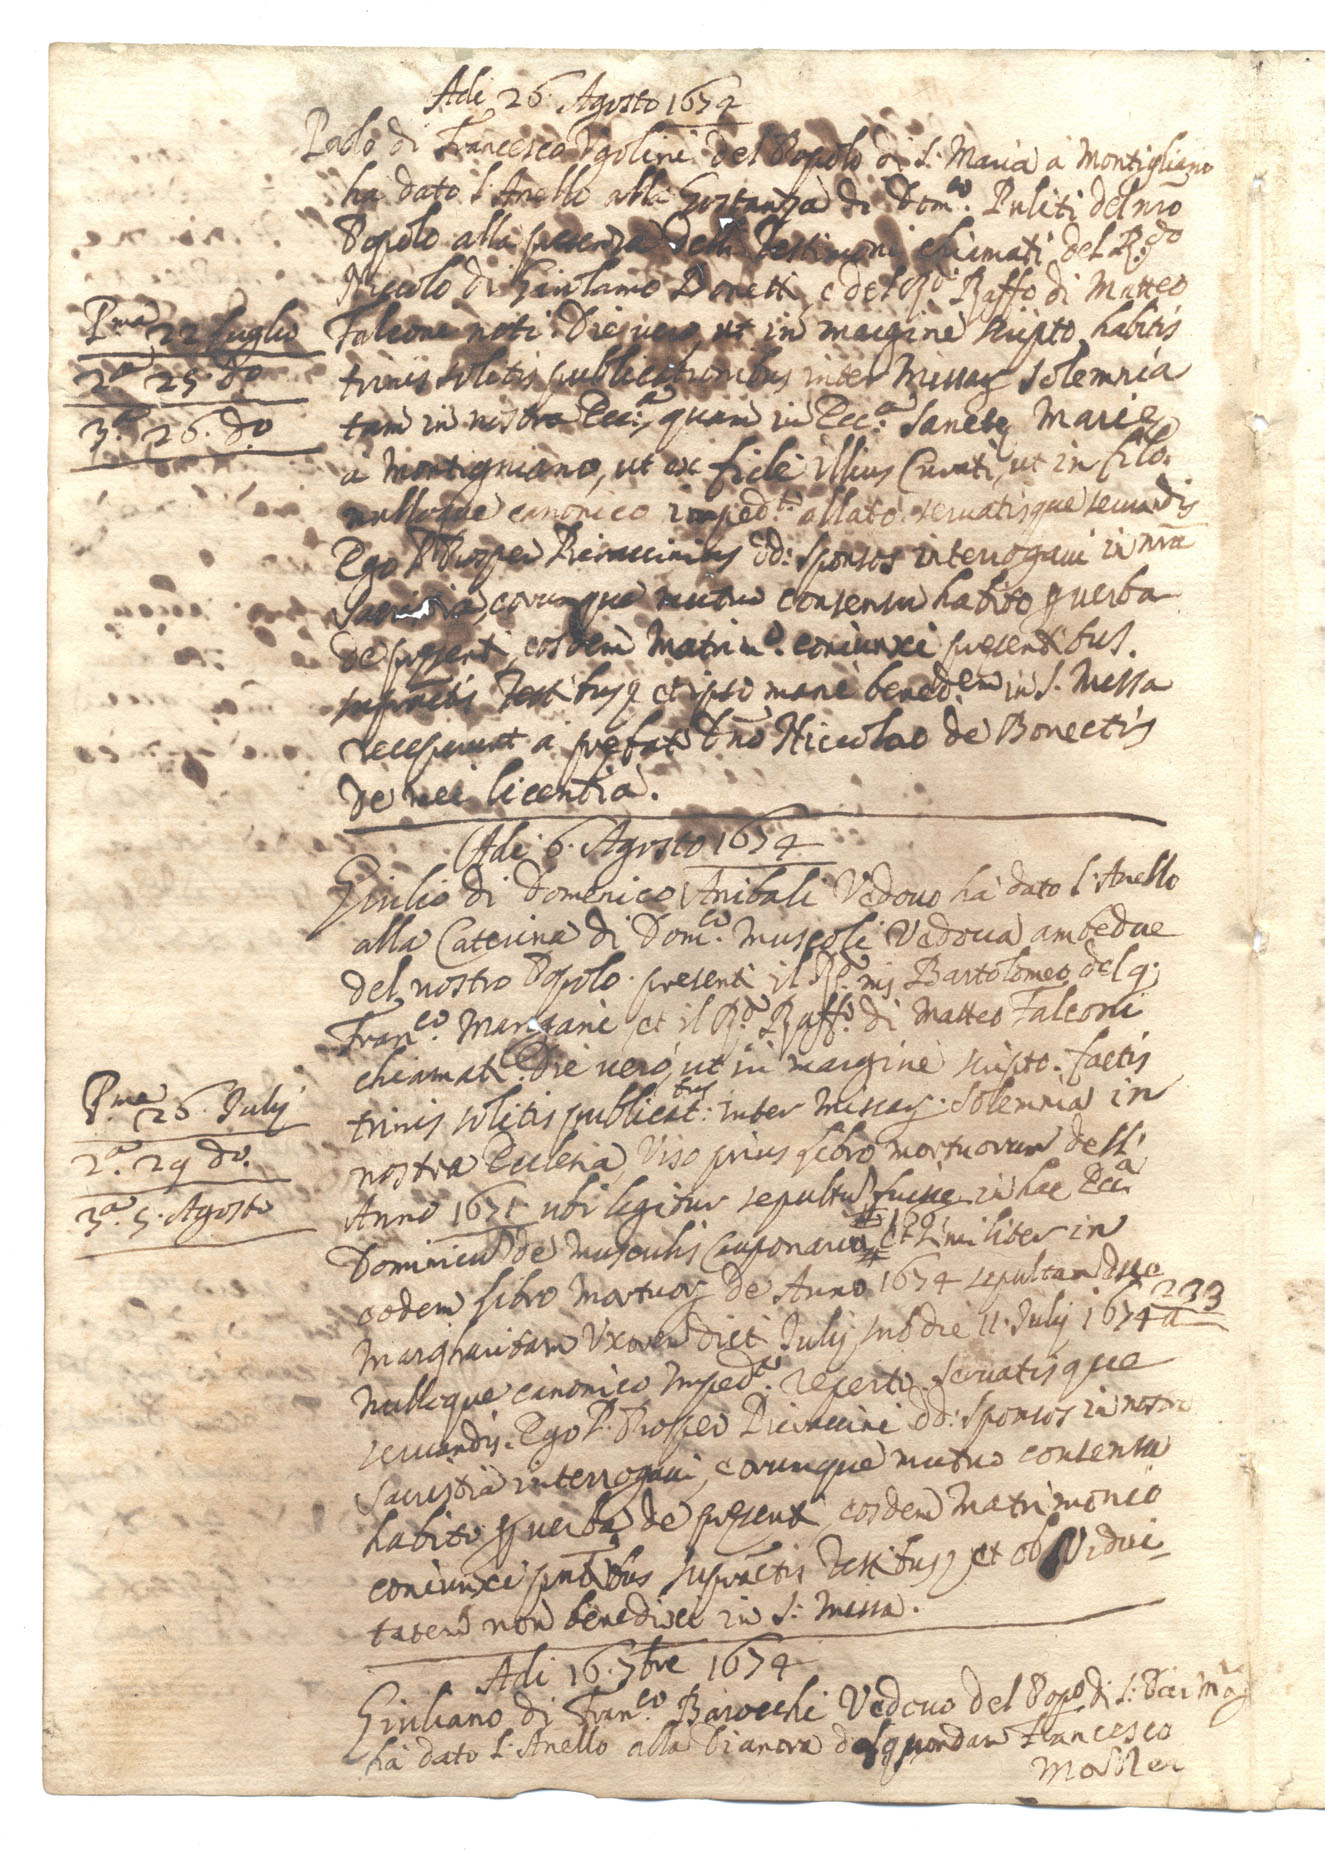 Adi 26. Agosto 1674
Paolo di Francesco Ugolini del Popolo di S: Maria a Montigliano
ha dato l'Anello alla Gostanza di Dom.co Puliti del nro
Popolo alla presenza delli Testimoni chiamati del R.do
Niccolo di Girolamo Bonetti, e del Raffo di Matteo
Pma 22 Luglio
2a 25 do
3a 26. do
Falconi noti. Die vero, ut in margine scripto, habitis
trinis solitis publicationibus inter Missar solemnia
tam in nostra Ecc:a, quam in Ecc:a Sancte Marie
a Montigniano, ut ex fide illius Curati, ut in filo.
nulloque canonico imped.to allato servatisque servandis
Ego P Prosper Pieraccinius dd: sponsos interrogavi in nra
Sacristia, eorumque mutuo consensu habito p verba
de presenti, eosdem Matrim.o coniunxi presentibus.
supractis Testibus, et ipso mane bened.em in S. Messa
receperunt a prefat Dno Niccolao de Bonectis
de mei licentia.
Adi 6. Agosto 1674
Giulio di Domenico Anibali Vedovo ha dato l'Anello
alla Caterina di Dom.co Muscoli Vedova ambedue
del nostro Popolo. presenti il Bartolomeo del q.
Fran.co Mangani et il R.do Raff.o di Matteo Falconi
chiamati. Die vero, ut in margine scripto. factis
Pma 26. July
2.a 29 do.
3.a 5. Agosto
trinis solitis publicat:bus inter Missar. Solemnia in
nostra Ecclesia, Viso prius libro mortuorum dell'
Anno 1671 ubi legitur sepultu fuisse in hac Ecc.a
Dominicu de Musculis Cauponariu # et similiter in
eodem libro Mortuor de Anno 1674 sepultam
233
Margharitam Uxorem dicti July sub die 11. July 1674 a
Nulloque canonico Imped.to reperto Servatisque
servandis. Ego P. Prosper Pieraccini dd: sponsos in nostra
Sacristia interrogavi, eorumque mutuo consensu
habito p verba de presenti, eosdem Matrimonio
coniunxi pntibus supractis Testibus, et ob Vidui-
tatem non benedixi in S: Missa.
Adi 16. 7bre 1674
Giuliano di Fran.co Barocchi Vedovo del Popo di S:
ha dato l'Anello alla Dianora del quondam Francesco